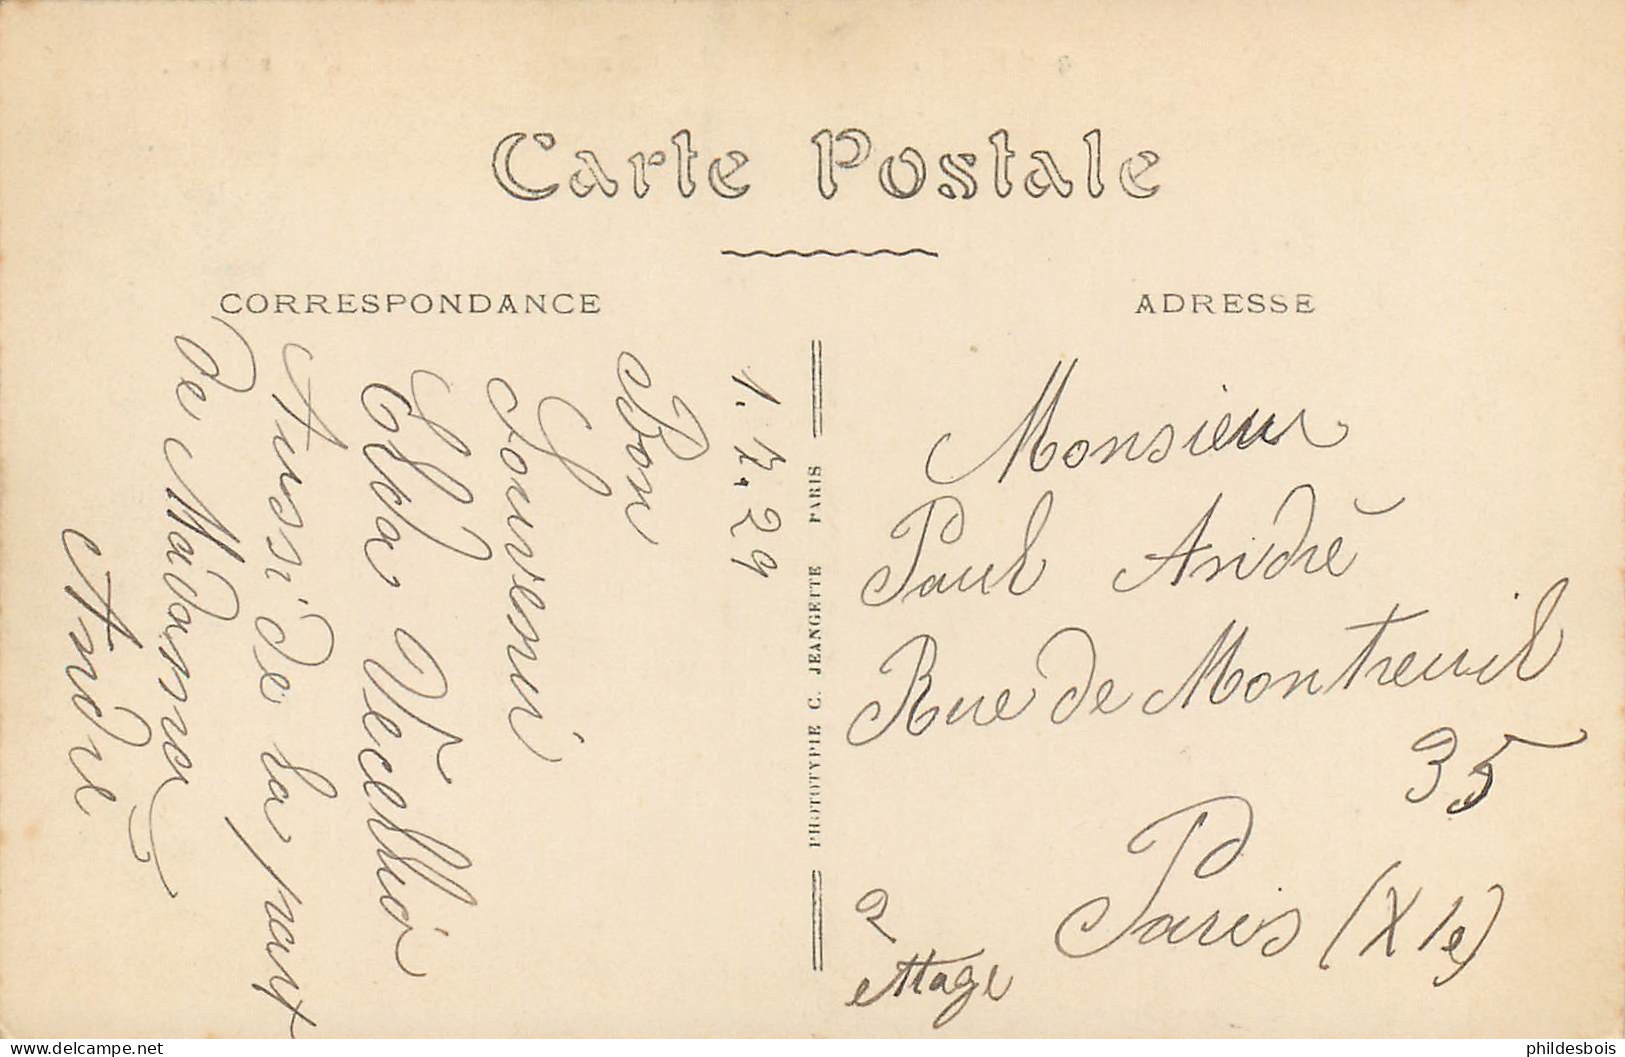 Carte Postale
CORRESPONDANCE
1.12.29
Bon
Souvenir
Elda Vecellio
Aussi de la part
de Madame
André
PHOTOTYPIE C. JEANGETTE PARIS
ADRESSE
Monsieur
Paul André
Rue de Montreuil
35
Paris (XIe)
2
ettage
delcampe.net
phildesbois